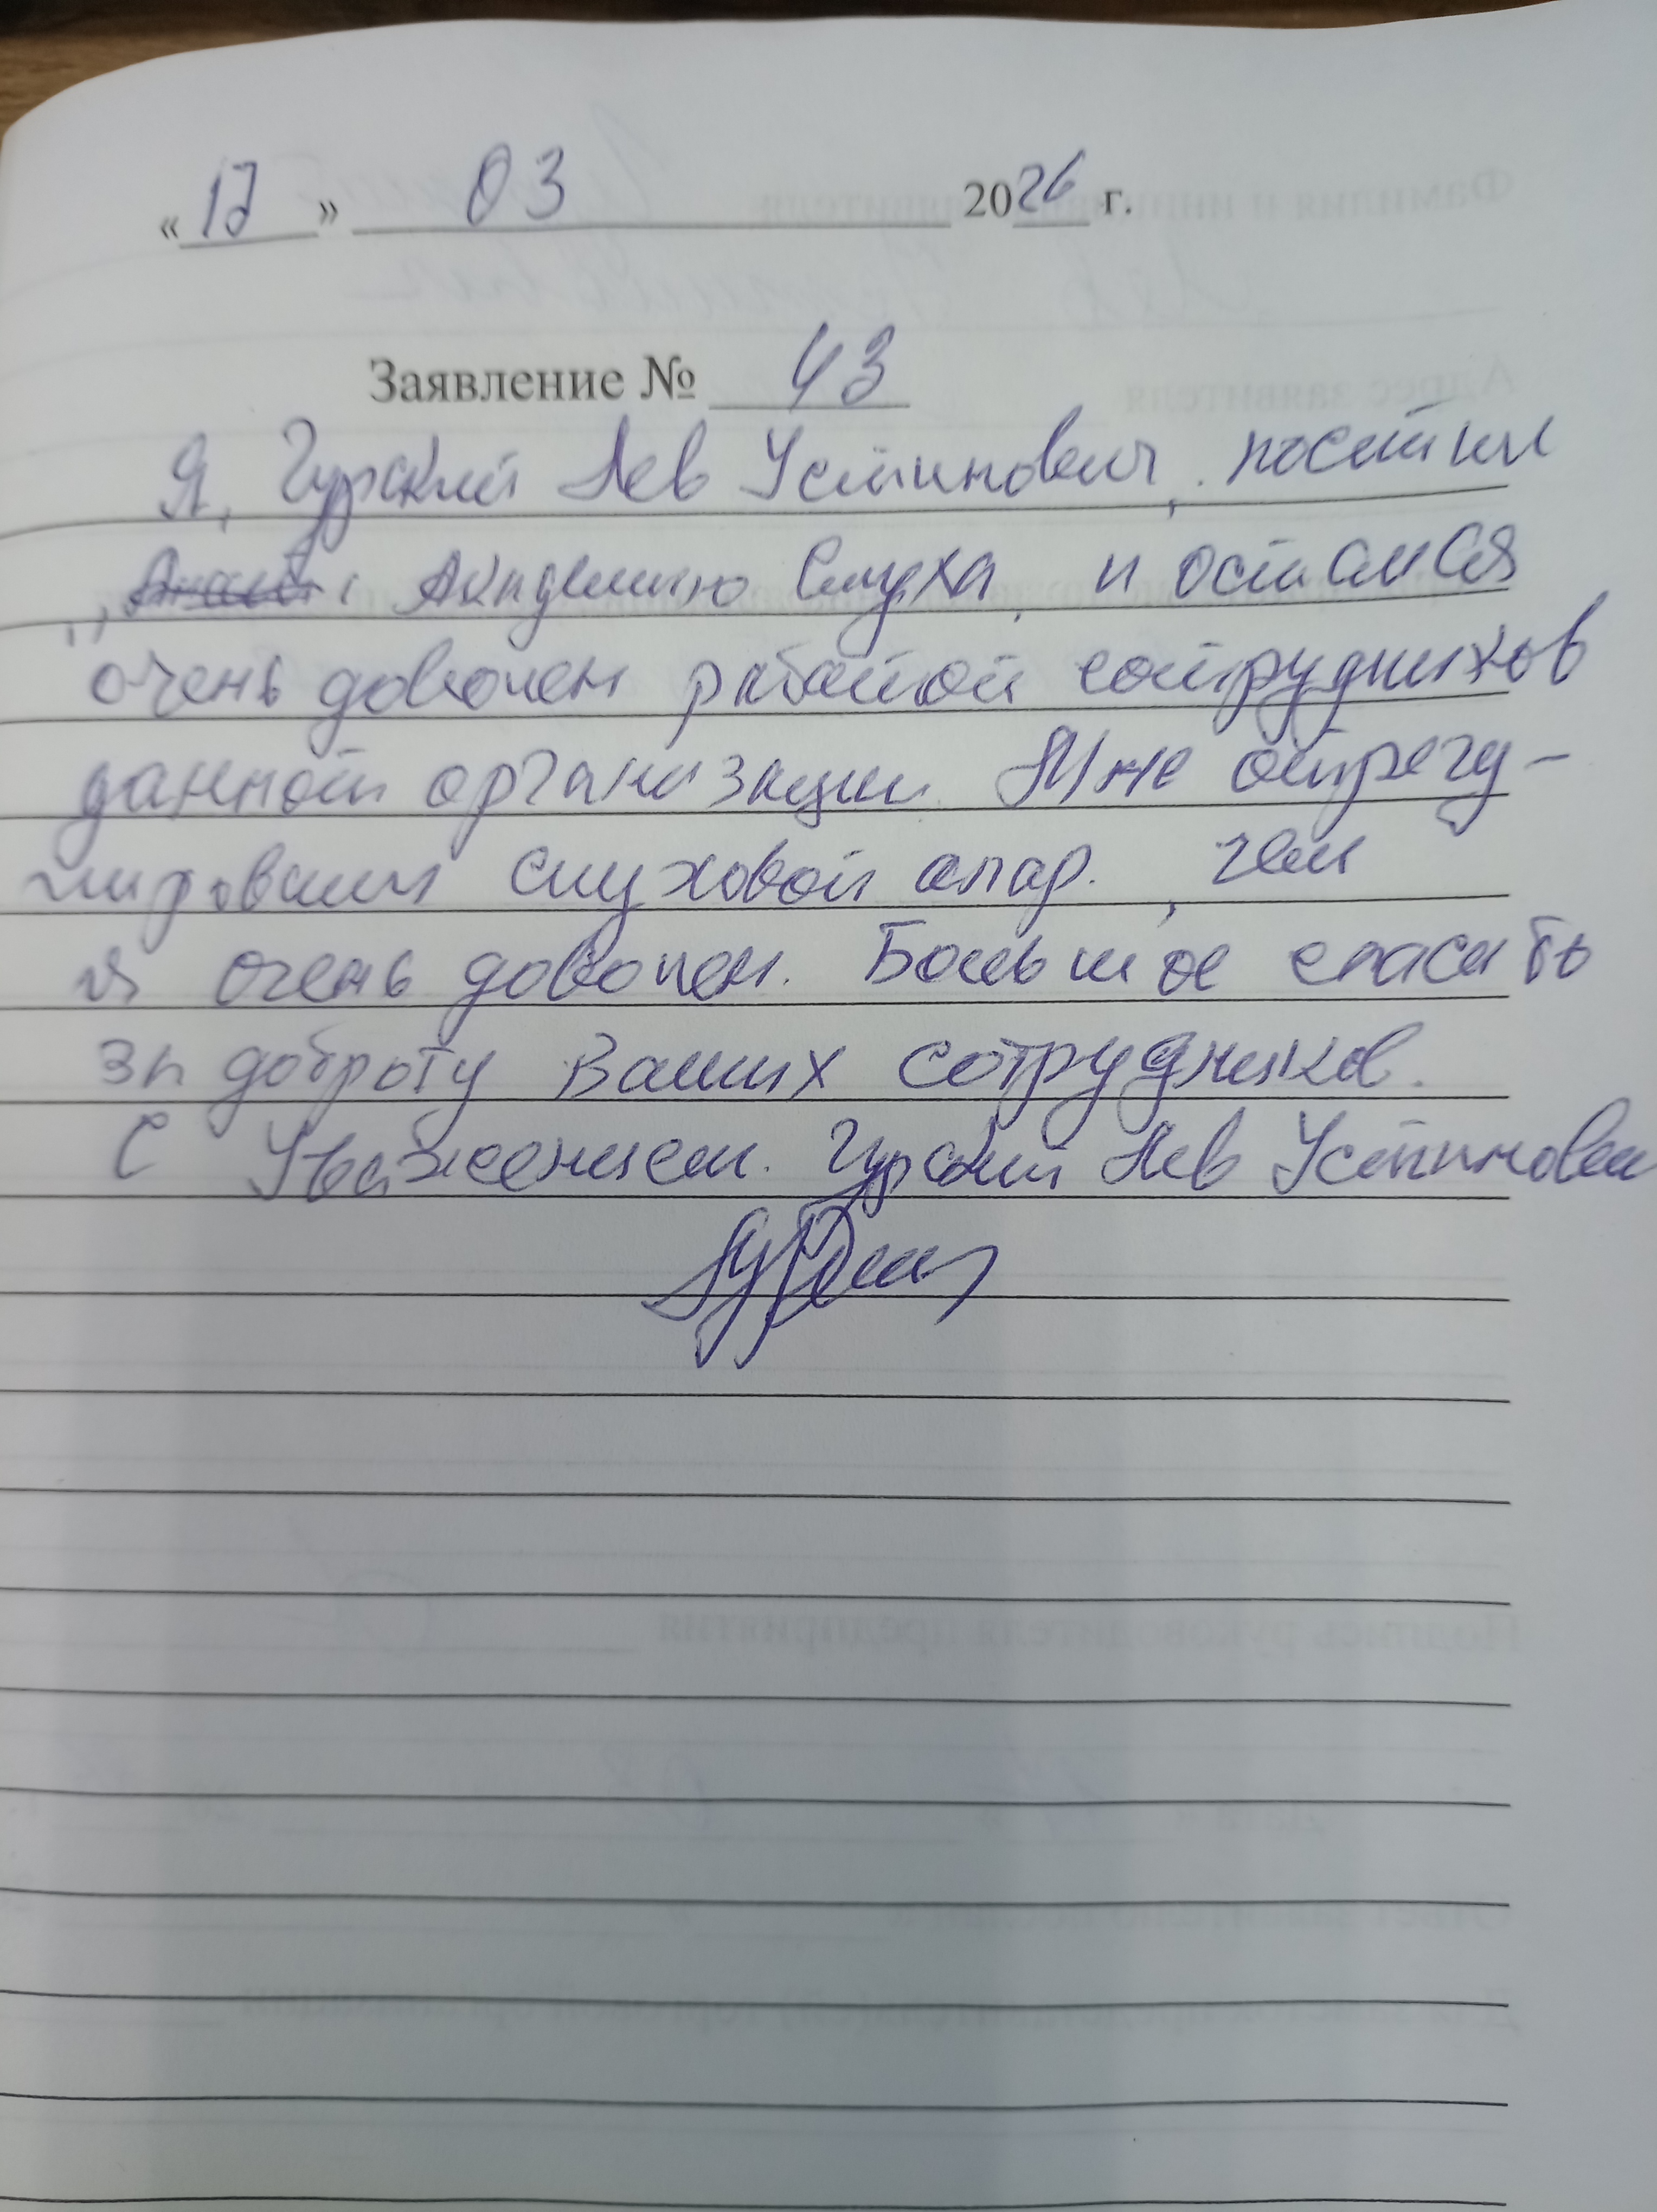 «17» 03 2026 г.
Заявление № 43
Я, Гурский Лев Устинович, посетил
Академию Слуха, и остался
очень доволен работой сотрудников
данной организации. Мне отрегу-
лировали слуховой апар., чем
я очень доволен. Большое спасибо
за доброту Ваших сотрудников.
С Уважением. Гурский Лев Устинович